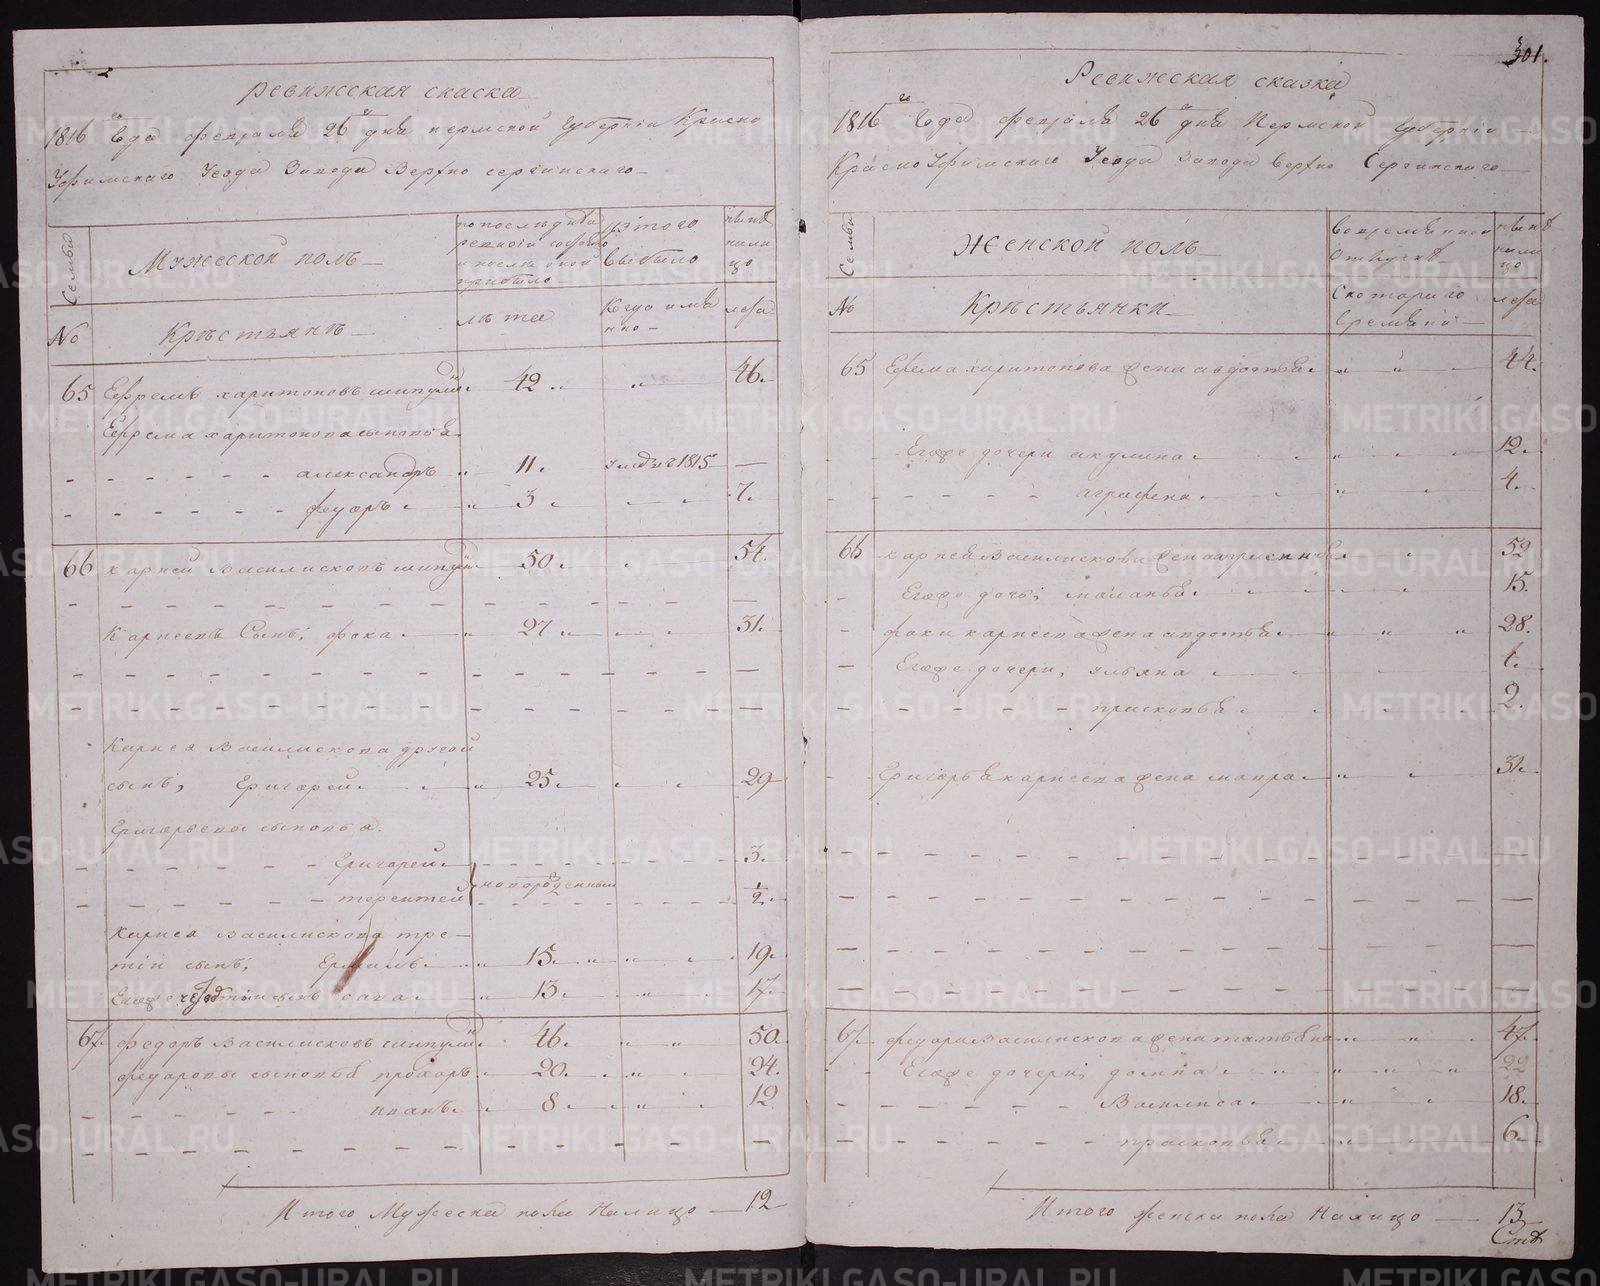 301.
Ревижская скаска
1816 го Года февраля 26 дня пермской Губернии Красно
Уфимскаго Уезда Завода Верхно сергинскаго
Семьи
Мужеской полъ
по последней ревизии состояло и после оной прибыло
изтого выбыло
ныне на лицо
№
Кръстьянъ
лета
Когда имянно
лета
65 Ефремъ харитоновъ шипулин 42 46.
Ефрема харитонова сыновья
александръ 11. умре въ 1815
федоръ 3 7.
66 Карпей Василисковъ шипулин 50. 54.
Карпеевъ Сынъ; фока 27 31.
Карпея Василискова другой
сынъ; Григорей 25 29
Григорьевы сыновья.
Григорей 3.
терентей новорожденный 1/2.
Карпея Василискова тре-
тий сынъ; Ермилъ 15 19
Егоже четвертой сынъ сава 13 17.
67. Федоръ Василисковъ шипулин 46. 50.
федоровы сыновья прохоръ 20. 24.
иванъ 8 12
Итого Мужеска пола Налицо 12
Ревижская сказка
1816 го Года февраля 26 дня Пермской Губернии
Красно Уфимскаго Уезда Завода Верхно Сергинскаго
Семьи
Женской полъ
во временной отлучке
ныне на лицо
№
Кръстьянки
Скотораго времяни
лета
65 Ефрема харитонова жена авдотья 44.
Егоже дочери акулина 12.
аграфена 4.
66 карпея Василискова жена аграфена 52
Егоже дочь; маланья 15.
фоки карпеева жена авдотья 28.
Егоже дочери, ульяна
прасковья 2.
Григорья карпеева жена мавра 31.
67. федора Василискова жена татьяна 47.
Егоже дочери; домна 22
Василиса 18.
прасковья 6.
Итого женска пола Налицо 13
METRIKI.GASO-URAL.RU